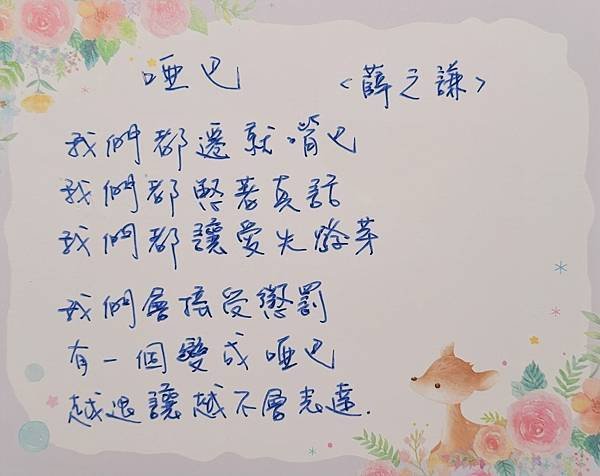 啞巴 <薛之謙>
我們都遷就嘴巴
我們都憋著真話
我們都讓愛失發芽
我們會接受懲罰
有一個變成啞巴
越退讓越不會表達.